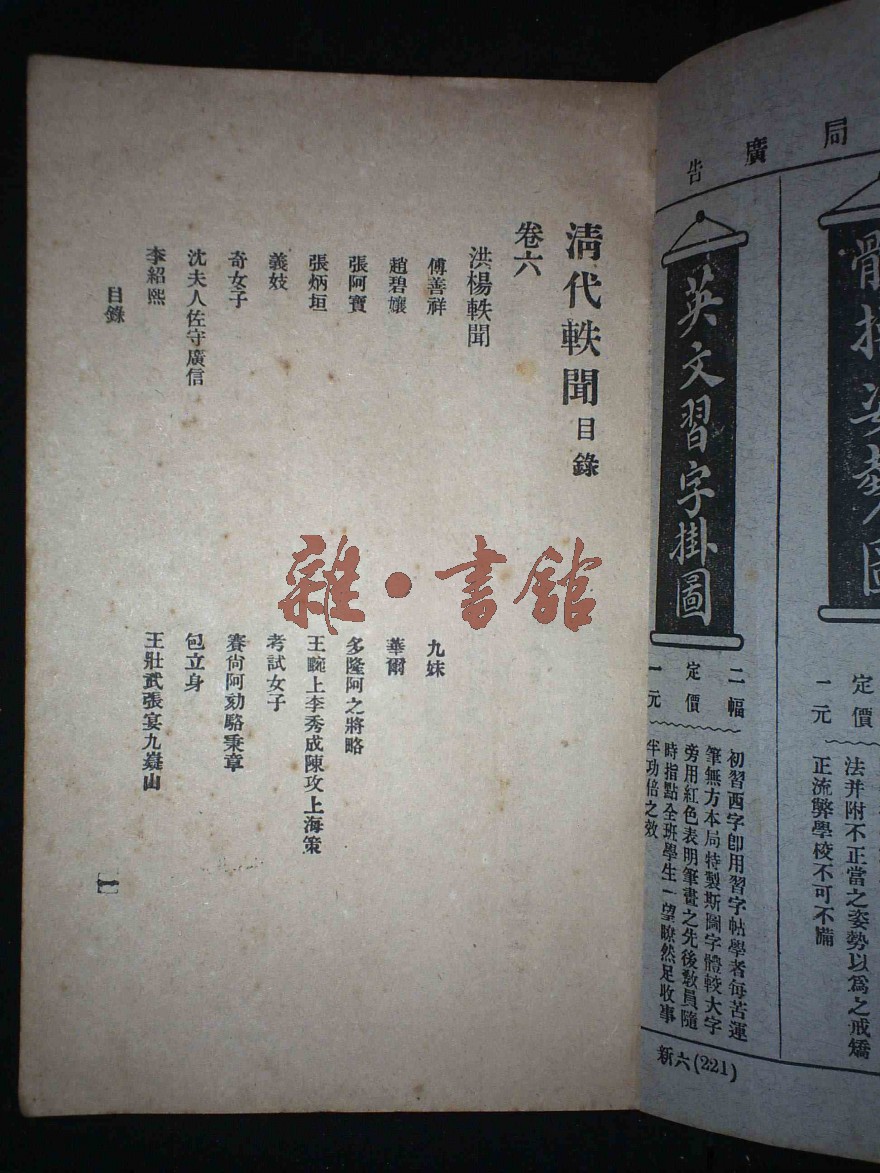 局廣告
姿勢圖
定價
一元
法并附不正當之姿勢以爲之戒矯
正流弊學校不可不備
英文習字掛圖
二幅
定價
一元
初習西字卽用習字帖學者每苦運
筆無方本局特製斯圖字體較大字
旁用紅色表明筆畫之先後敎員隨
時指點全班學生一望瞭然足收事
半功倍之效
新六(221)
清代軼聞目錄
卷六
洪楊軼聞
傅善祥
九妹
趙碧孃
華爾
張阿寶
多隆阿之將略
張炳垣
王畹上李秀成陳攻上海策
義妓
考試女子
奇女子
賽尙阿劾駱秉章
沈夫人佐守廣信
包立身
李紹熙
王壯武張宴九嶷山
目錄
一
雜·書館